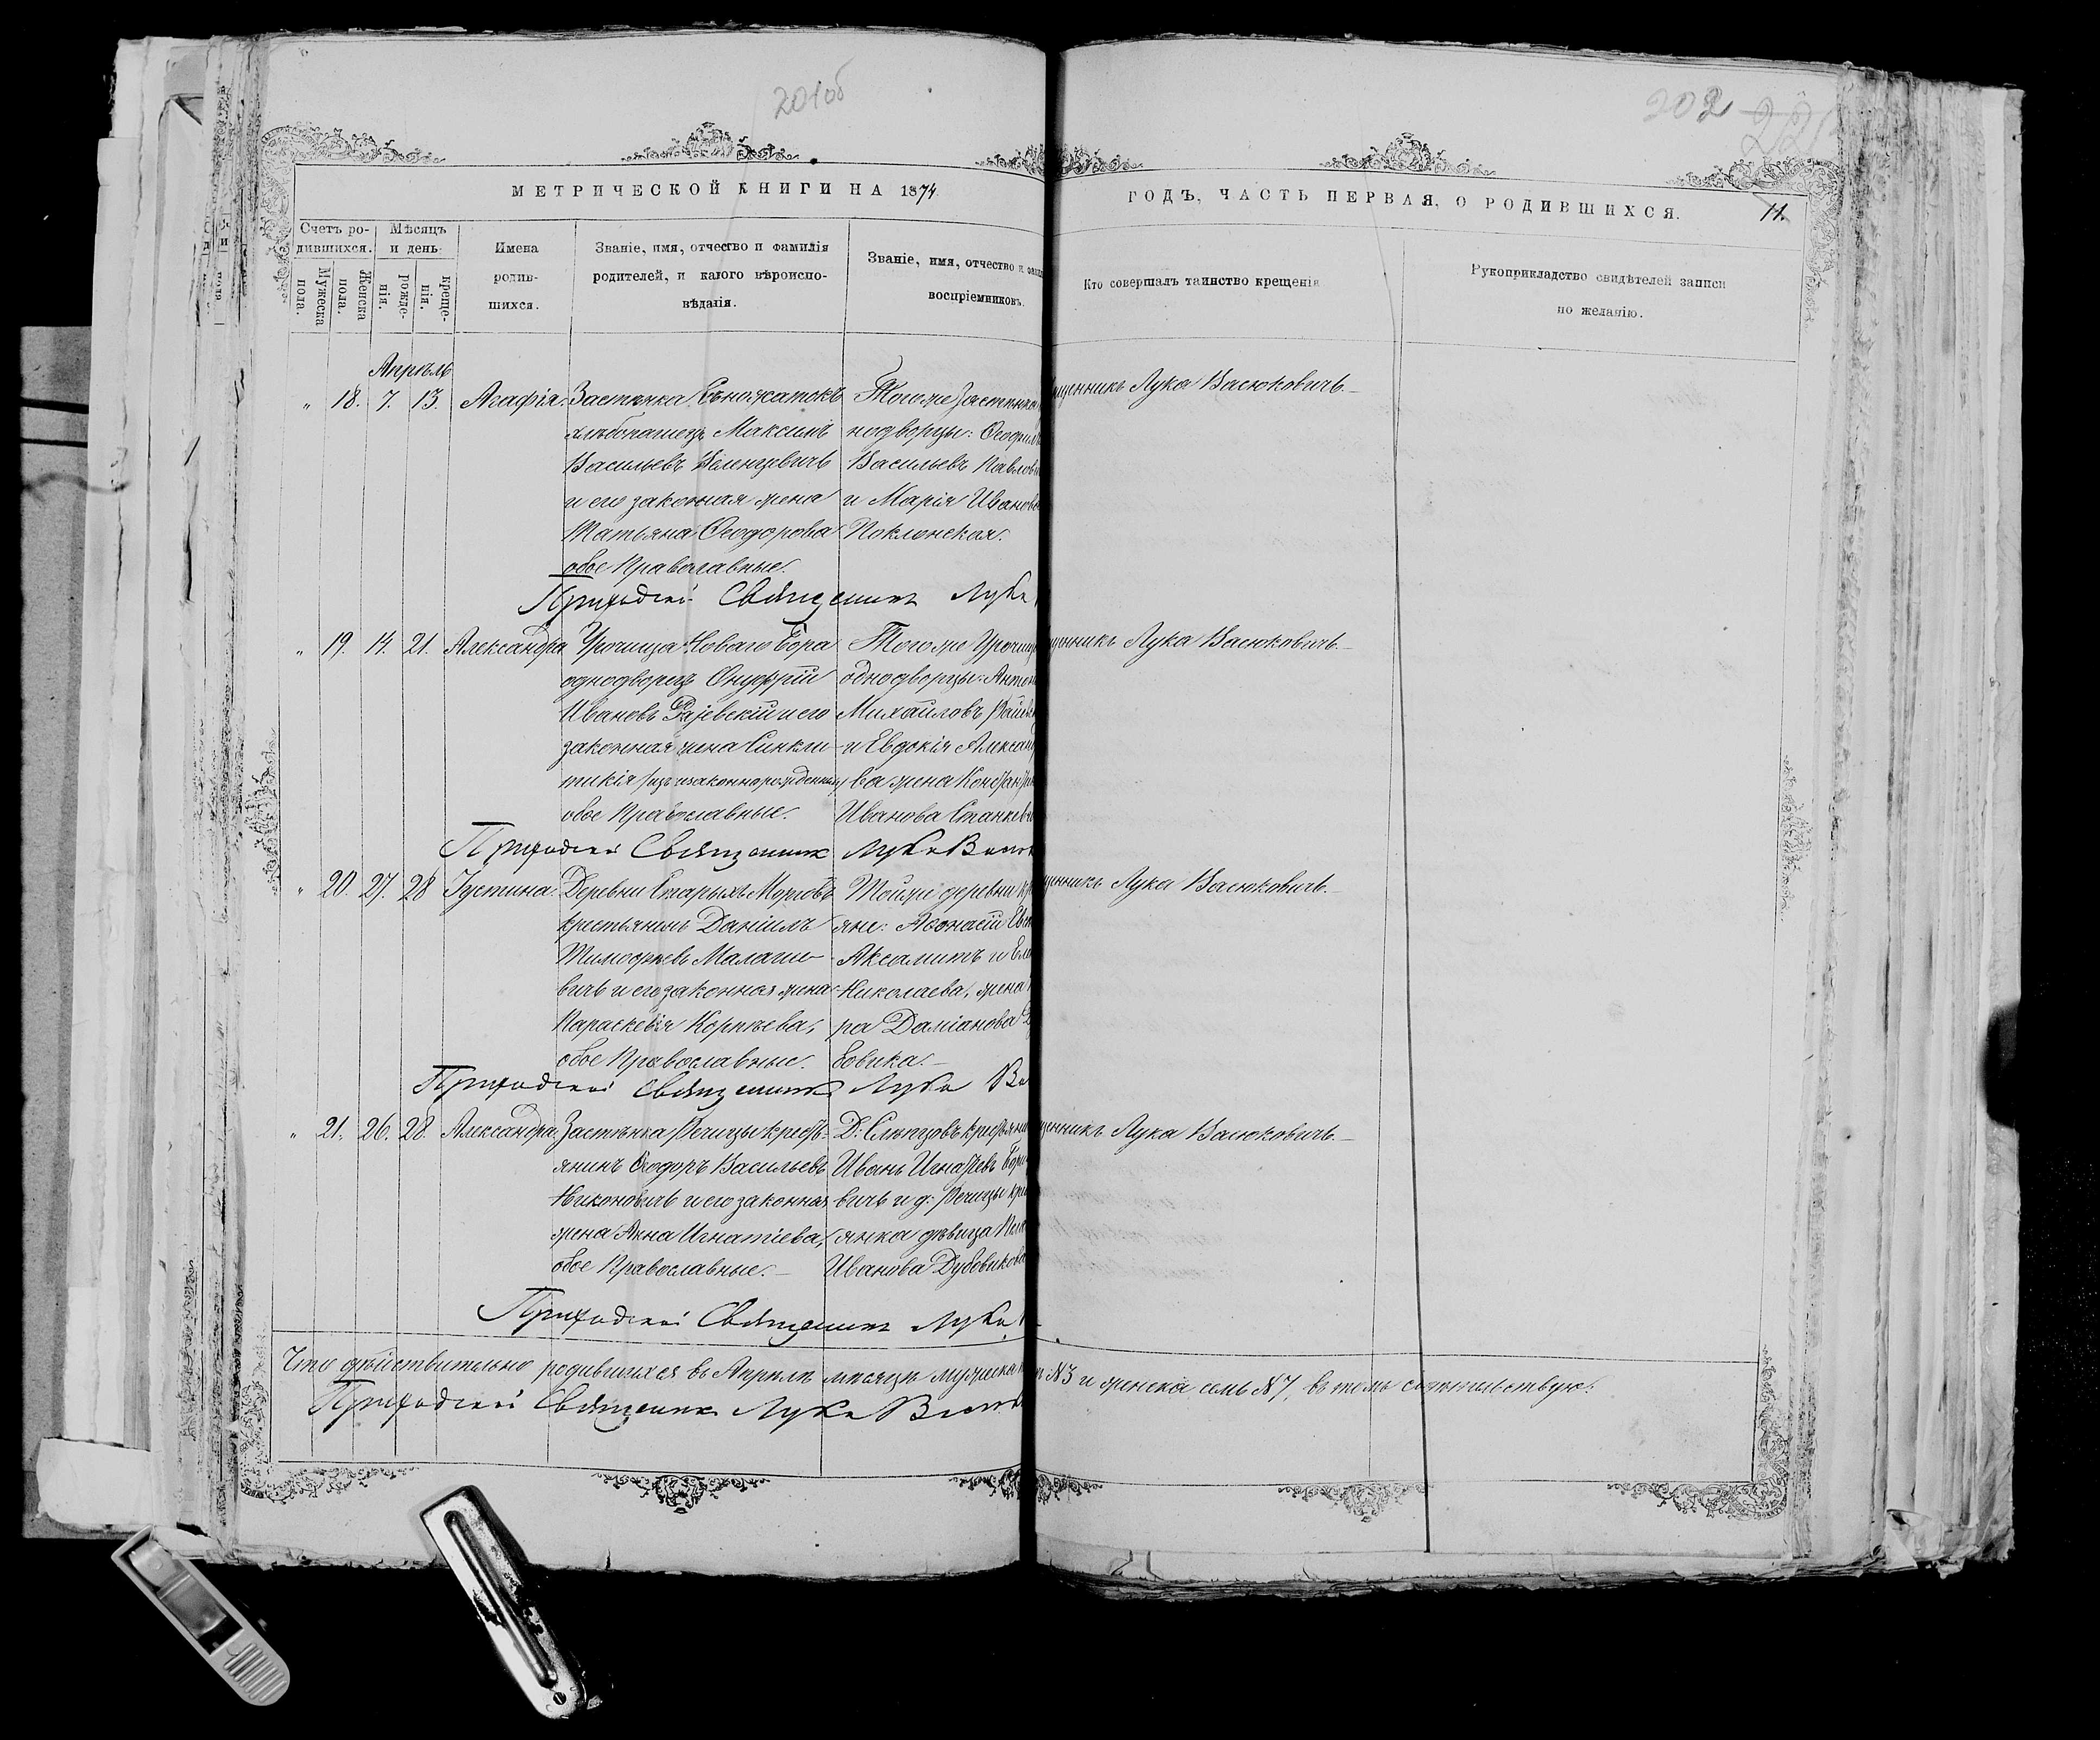 201об
202
МЕТРИЧЕСКОЙ КНИГИ НА 1874
ГОДЪ, ЧАСТЬ ПЕРВАЯ, О РОДИВШИХСЯ.
11.
Счетъ ро-
дившихся.
Мужеска
пола.
Женска
пола.
Мѣсяцъ
и день
рожде-
нія.
креще-
нія.
Имена
родив-
шихся.
Званіе, имя, отчество и фамилія
родителей, и какого вѣроиспо-
вѣданія.
Званіе, имя, отчество и
воспріемниковъ.
Кто совершалъ таинство крещенія
Рукоприкладство свидѣтелей записи
по желанію.
Апрѣль
" 18. 7. 13. Агафія.
Застѣнка Сѣножатокъ
хлѣбопашецъ Максимъ
Васильевъ
и его законная жена
Татьяна Ѳеодорова
обое Православные.
Тогоже застѣнка
нодворцы: Ѳеофил
Васильевъ Павлов
и Марія Иванов
Поклонская.
щенникъ Лука Васюковичъ.
Приходскій Священникъ Лука
" 19. 14. 21. Александра
Урочища Новаго Бора
однодворецъ Онуфрій
Ивановъ Раjевскій и его
законная жена Синкли-
тикія /изъ незаконнорожденных/
обое Православные.
Тогоже Урочищ
однодворцы: Антон
Михайловъ Райев
и Евдокія Алексан
ва жена Констан
Иванова Станкев
щенникъ Лука Васюковичъ.
Приходскій Священникъ Лука Васю
" 20. 27. 28 Іустина.
Деревни Старыхъ
крестьянинъ Даніилъ
Тимофѣевъ Малаше-
вичъ и его законная жена
Параскевія Корнѣева,
обое Православные.
Тойже деревни кр
яне: Аѳонасій Евс
Аксамитъ и Еле
Николаева, жена
ра Даміанова Д
бовика.
щенникъ Лука Васюковичъ.
Приходскій Священникъ Лука Ва
" 21. 26. 28. Александра
Застѣнка Речицы кресть-
янинъ Ѳеодоръ Васильевъ
Никоновичъ и его законная
жена Анна Игнатіева,
обое Православные.
Д: Слѣпцовъ крестьяни
Иванъ Игнатьевъ Бори
вичъ и д: Речицы кре
янка дѣвица Пел
Иванова Дубовикова
щенникъ Лука Васюковичъ.
Приходскій Священникъ Лука
Что дѣйствительно родившихся въ Апрѣлѣ мѣсяцѣ мужеска № 3 и женска семь № 7, въ томъ свидѣтельствую:
Приходскій Священникъ Лука Васюк